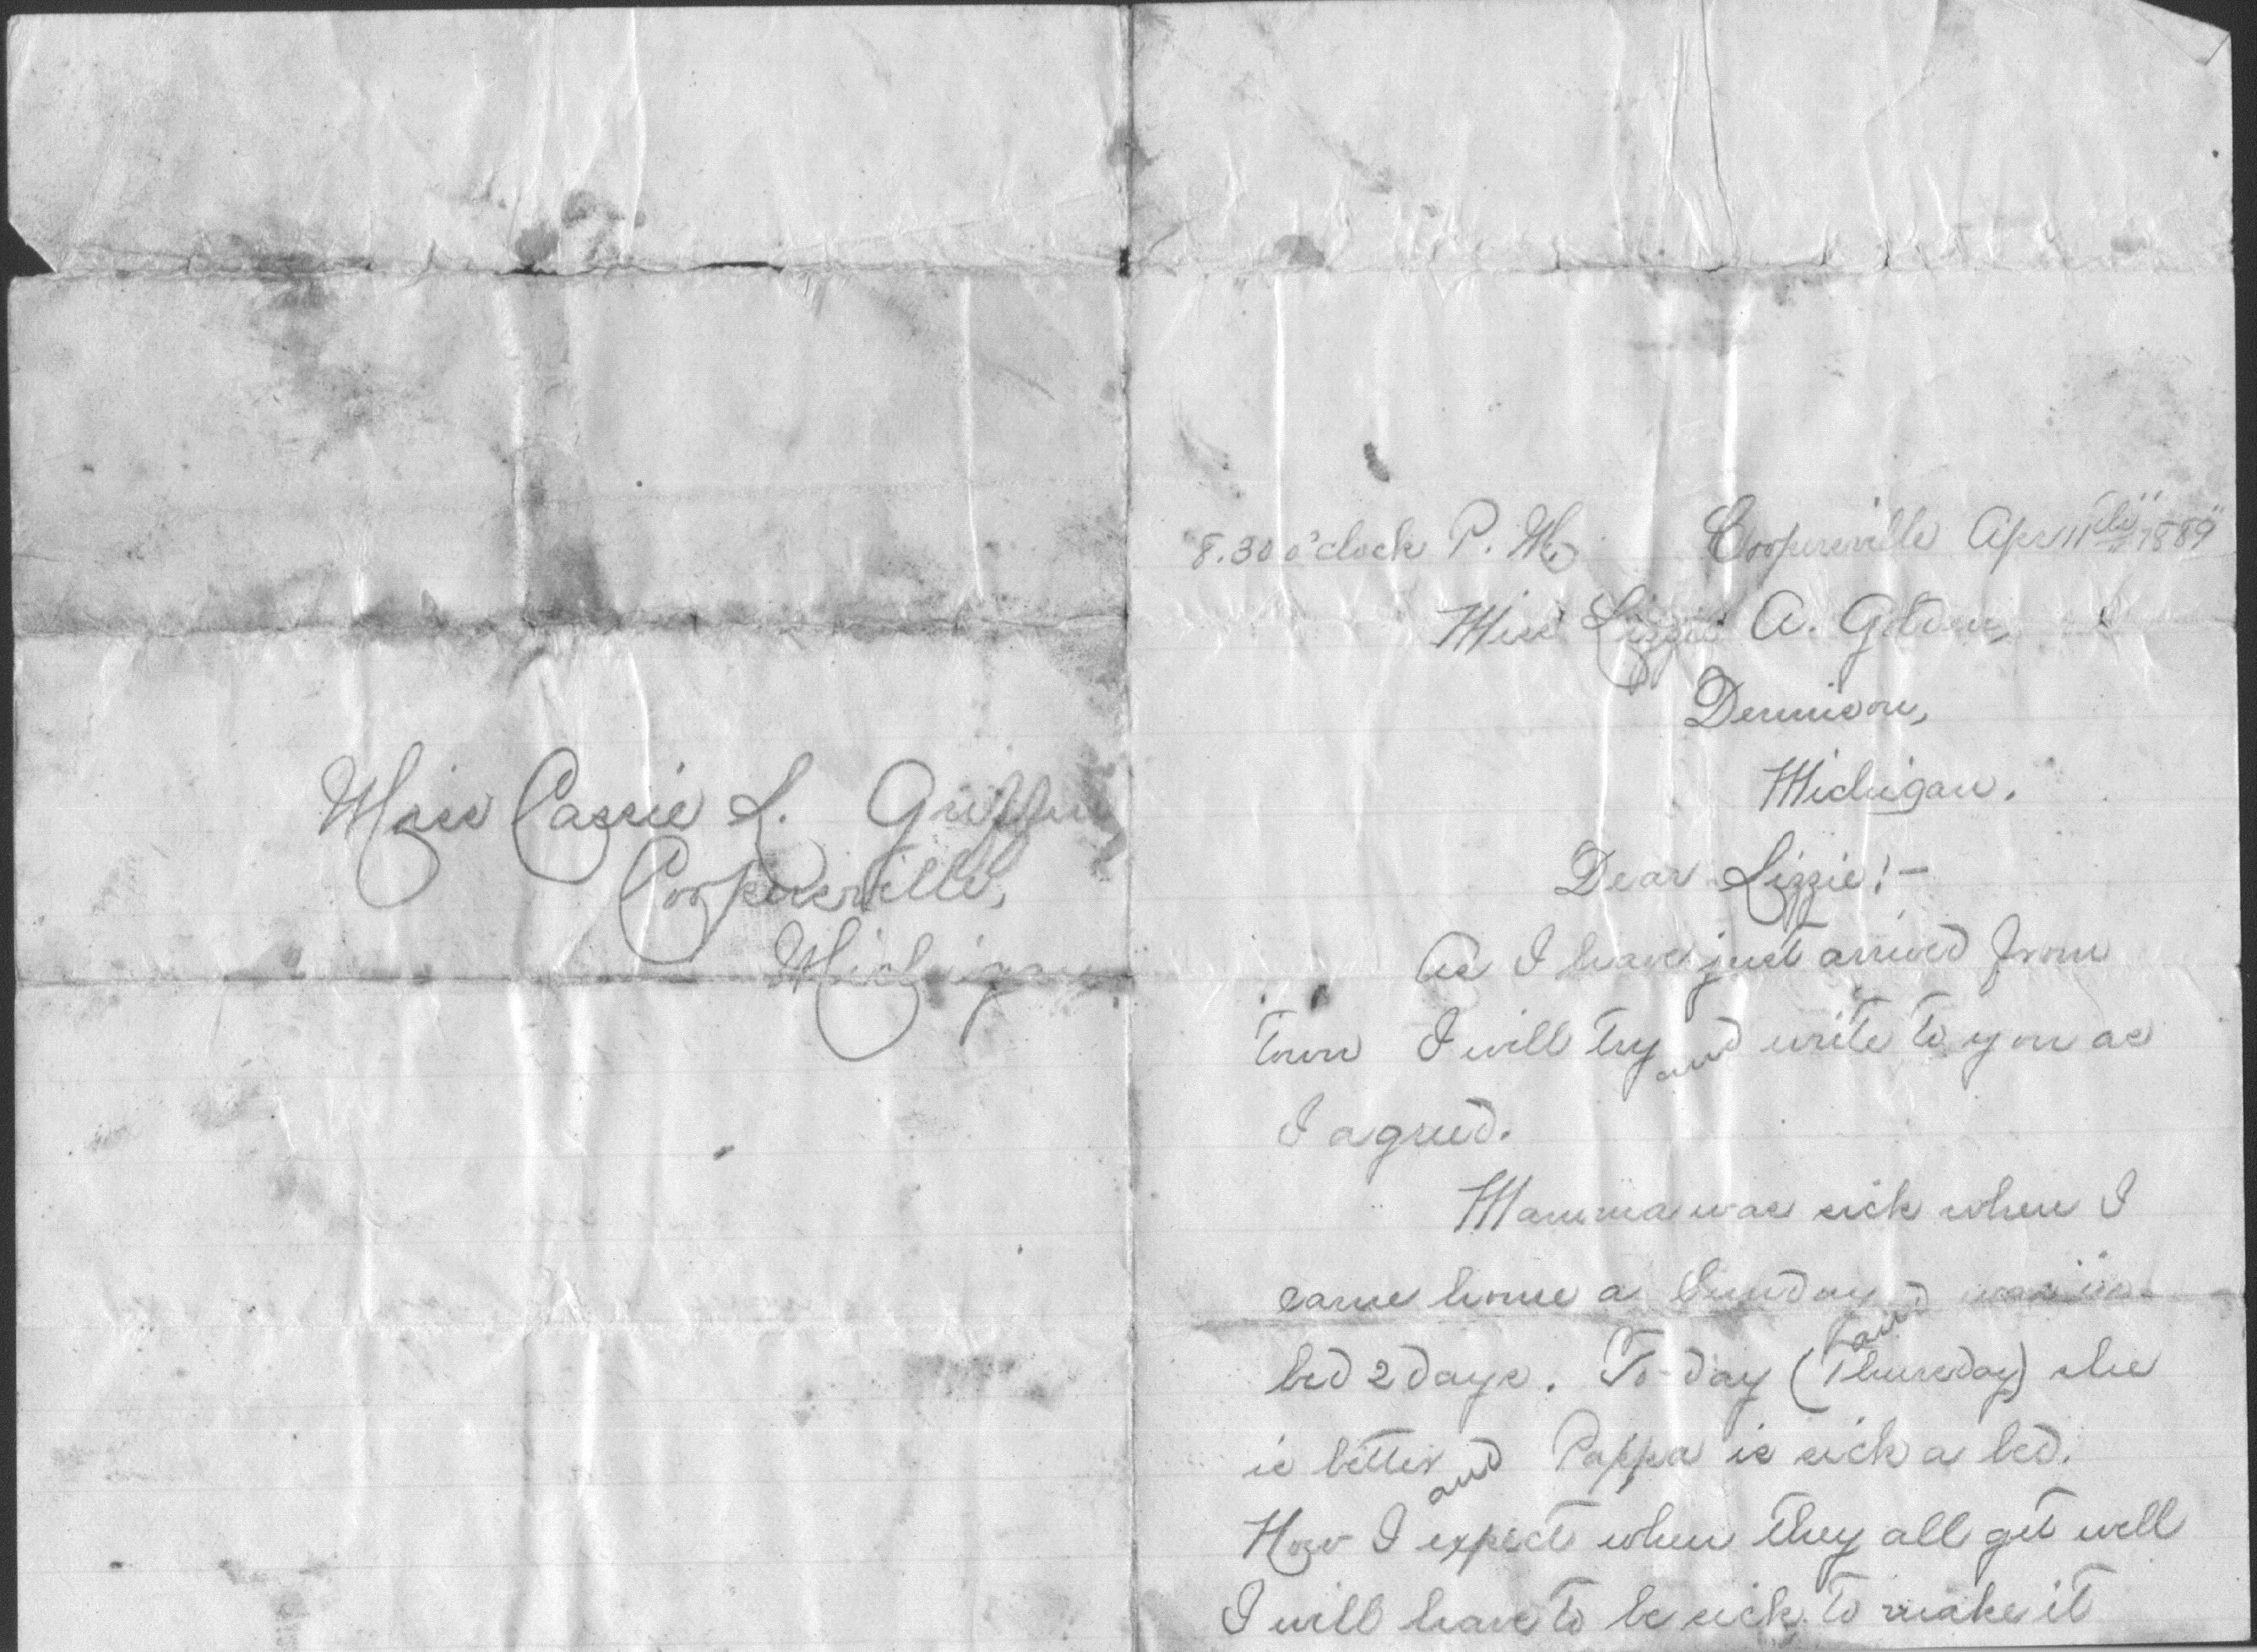 Miss Cassie L. Griffin,
Coopersville,
Michigan
8.30 o'clock P. M. Coopersville Apr 11th 1889
Miss Lizzie A. Golden,
Dennison,
Michigan.
Dear Lizzie!-
As I have just arrived from
town I will try and write to you as
I agreed.
Mamma was sick when I
came home a Sunday and was in
bed 2 days. To-day (Thursday) she
is better and Pappa is sick a bed.
Now I expect when they all get well
I will have to be sick to make it